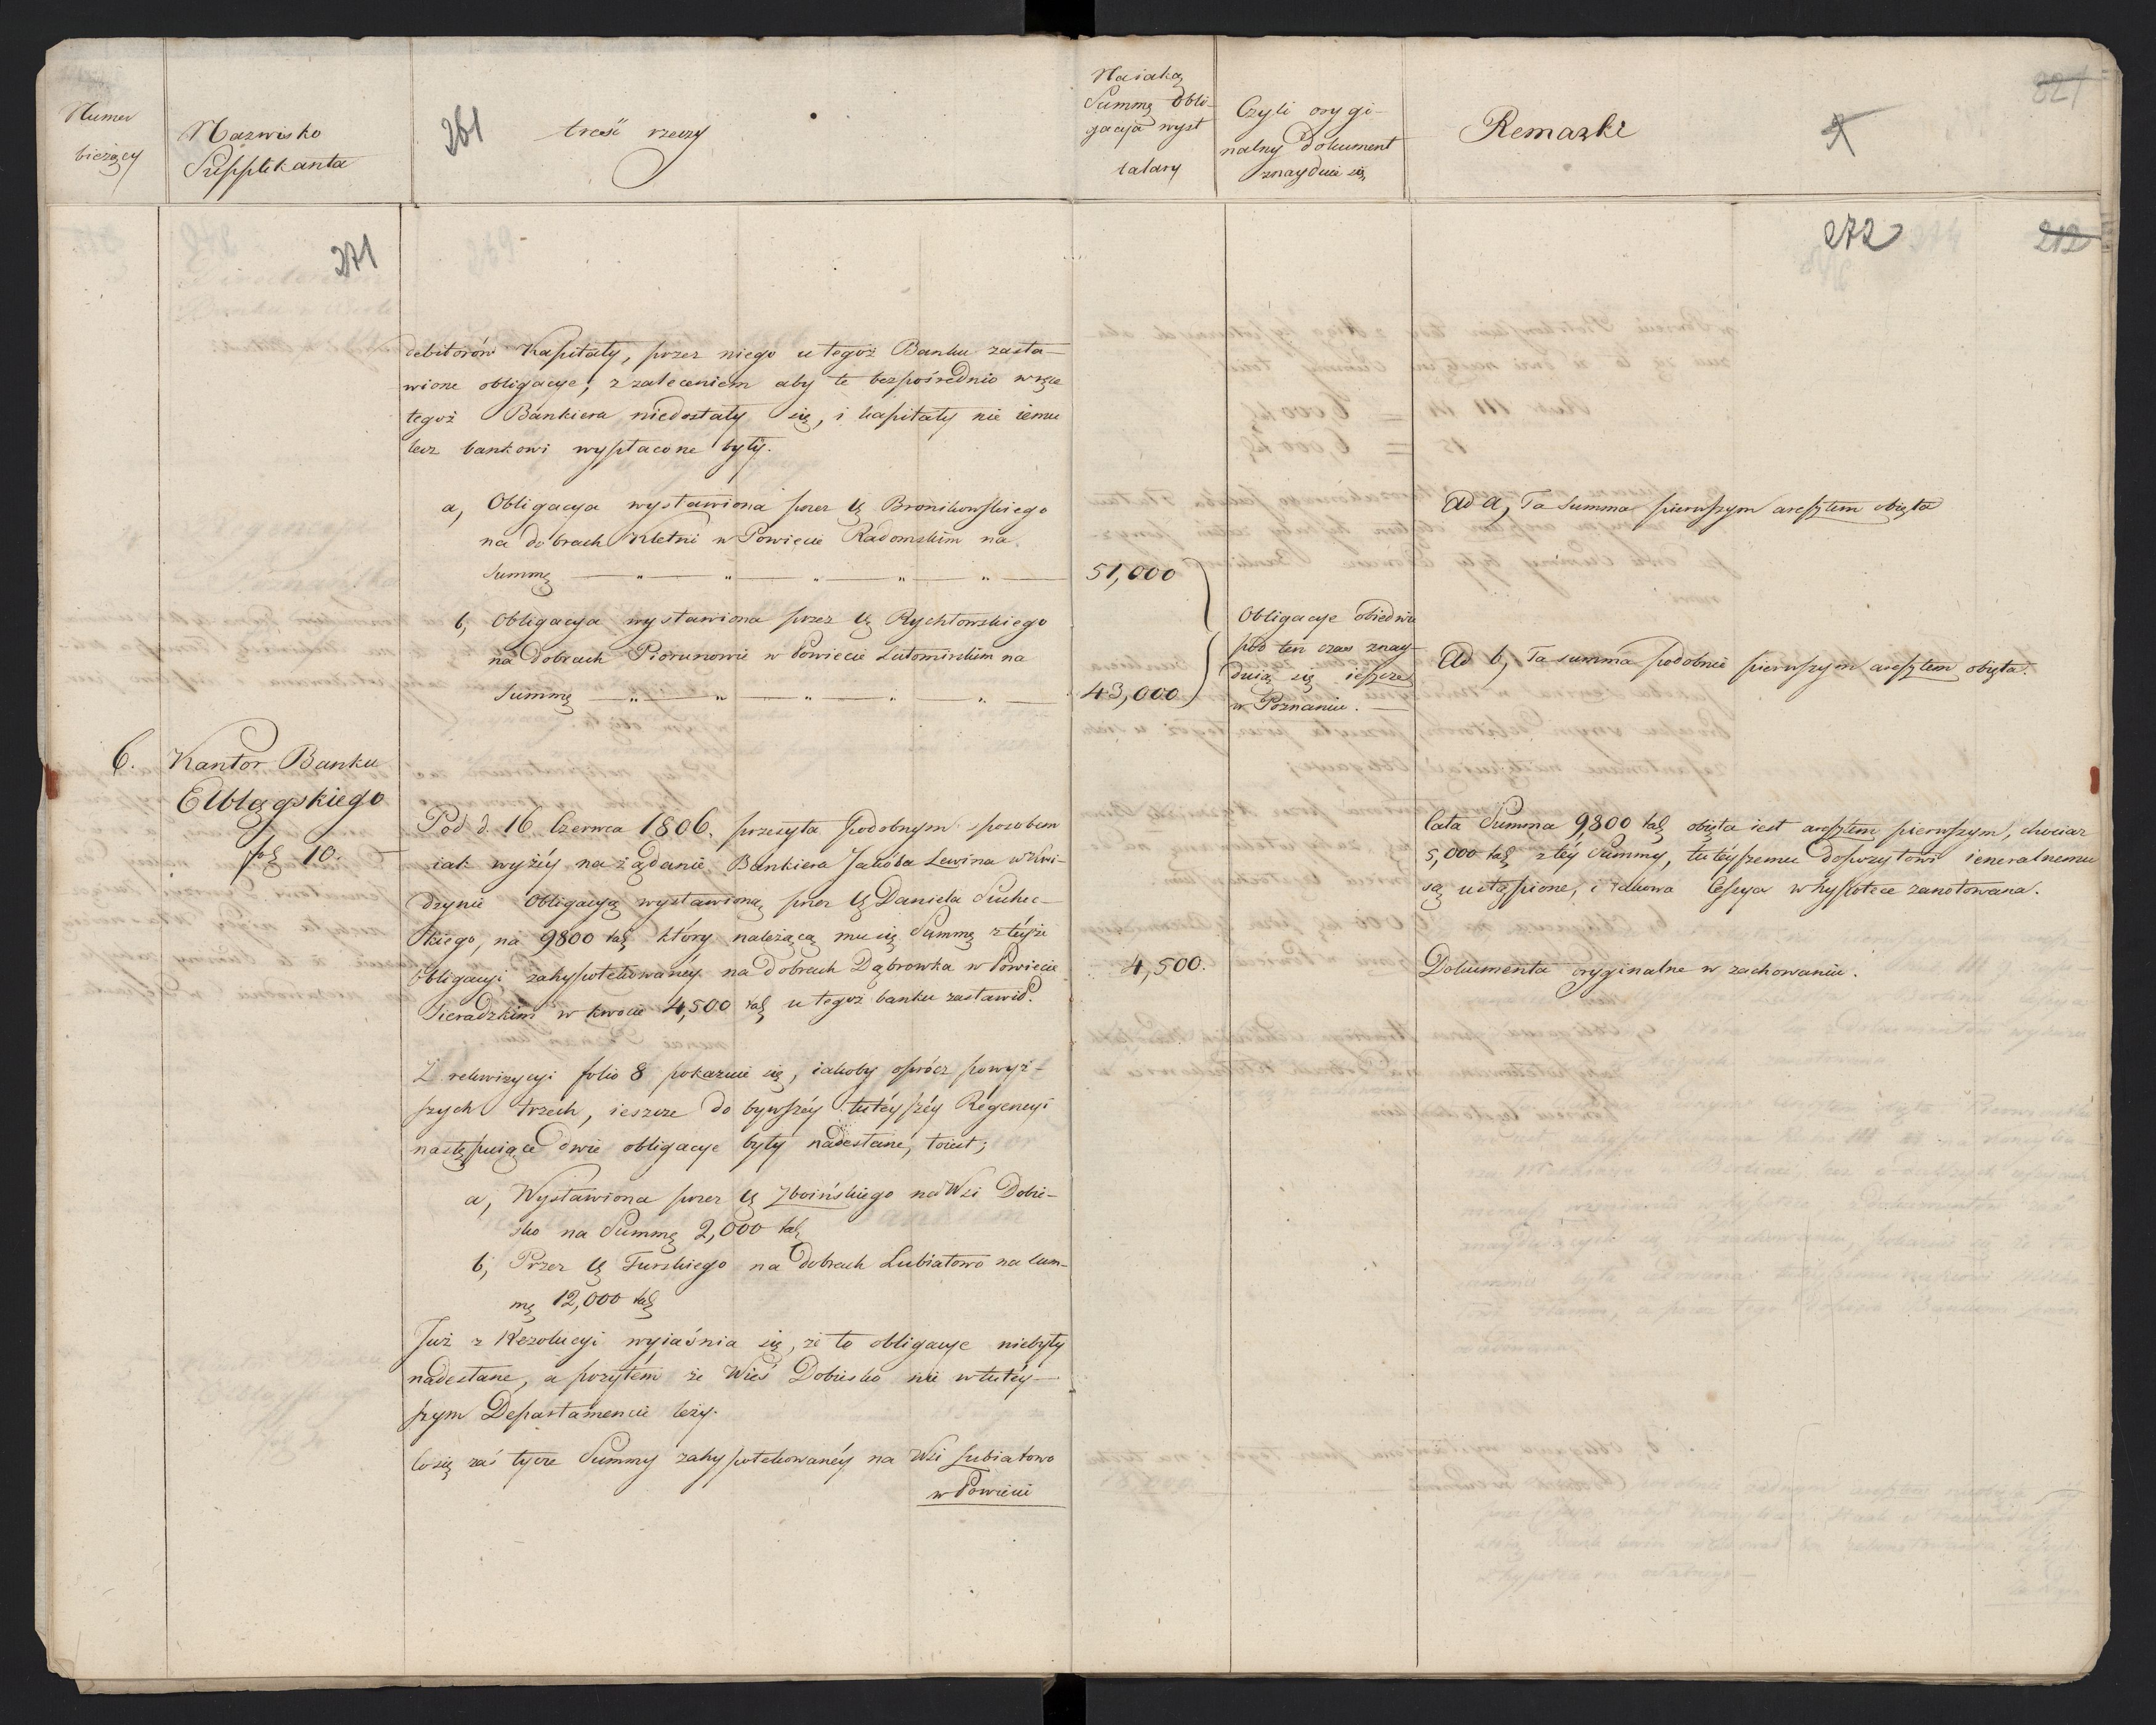 Numer
bieżący
Nazwisko
Supplikanta
261
treść rzeczy
Na iaką
Summę obli-
gacya wyst
talary
Czyli orygi-
nalny dokument
znayduie się
Remarki
321
271
272
212
debitorów Kapitały, przez niego u tegoż Banku zasta-
wione obligacye, z zaleceniem aby te bezpośrednio w ręce
tegoż Bankiera niedostały się, i kapitały nie iemu
lecz bankowi wypłacone były.
a, Obligacya wystawiona przez Ur Bronikowskiego
na dobrach Kletni w Powiecie Radomskim na
Summę — " — " — " — " — " — 51,000
Ad a, Ta Summa pierwszym aresztem obięta
b, Obligacya wystawiona przez Ur Rychłowskiego
na Dobrach Piorunowie w Powiecie Lutomirskim na
Summę — " — " — " — " — " — 43,000
Obligacye obiedwie
pod ten czas znay-
duią się ieszcze
w Poznaniu. —
Ad b, Ta summa podobnie pierwszym aresztem obięta.
6. Kantor Banku
Elblągskiego
fol 10. —
Pod d. 16 Czerwca 1806. przesyła podobnym sposobem
iak wyżéy na żądanie Bankiera Jakóba Lewina w Kwi-
dzynie Obligacyą wystawioną przez Ur Daniela Suchec-
kiego, na 9800 tal który należącą mu się Summę z téyże
obligacyi zahypotekowanéy na dobrach Dąbrowka w Powiecie
Sieradzkim w kwocie 4,500 tal u tegoż banku zastawił.
4,500.
Cała Summa 9,800 tal obięta iest aresztem pierwszym, chociaż
5,000 tal z téy Summy, tutéyszemu Depozytowi ieneralnemu
są ustąpione, i takowa Cessya w hypotece zanotowana.
Dokumenta oryginalne w zachowaniu.
Z rekwizycyi folio 8 pokazuie się, iakoby oprócz powyż-
szych trzech, ieszcze do bywszéy tutéyszéy Regencyi
następuiące dwie obligacye były nadesłane, toiest;
a, Wystawiona przez Ur Zboińskiego na Wsi Dobie-
sko na Summę 2,000 tal
b, Przez Ur Turskiego na dobrach Lubiatowo na Sum-
mę 12,000 tal
Już z Rezolucyi wyiaśnia się, że te obligacye niebyły
nadesłane, a przytém że Wieś Dobiesko nie w tutéy-
szym Departamencie leży.
Co się zaś tycze Summy zahypotekowanéy na Wsi Lubiatowo
w Powiecie